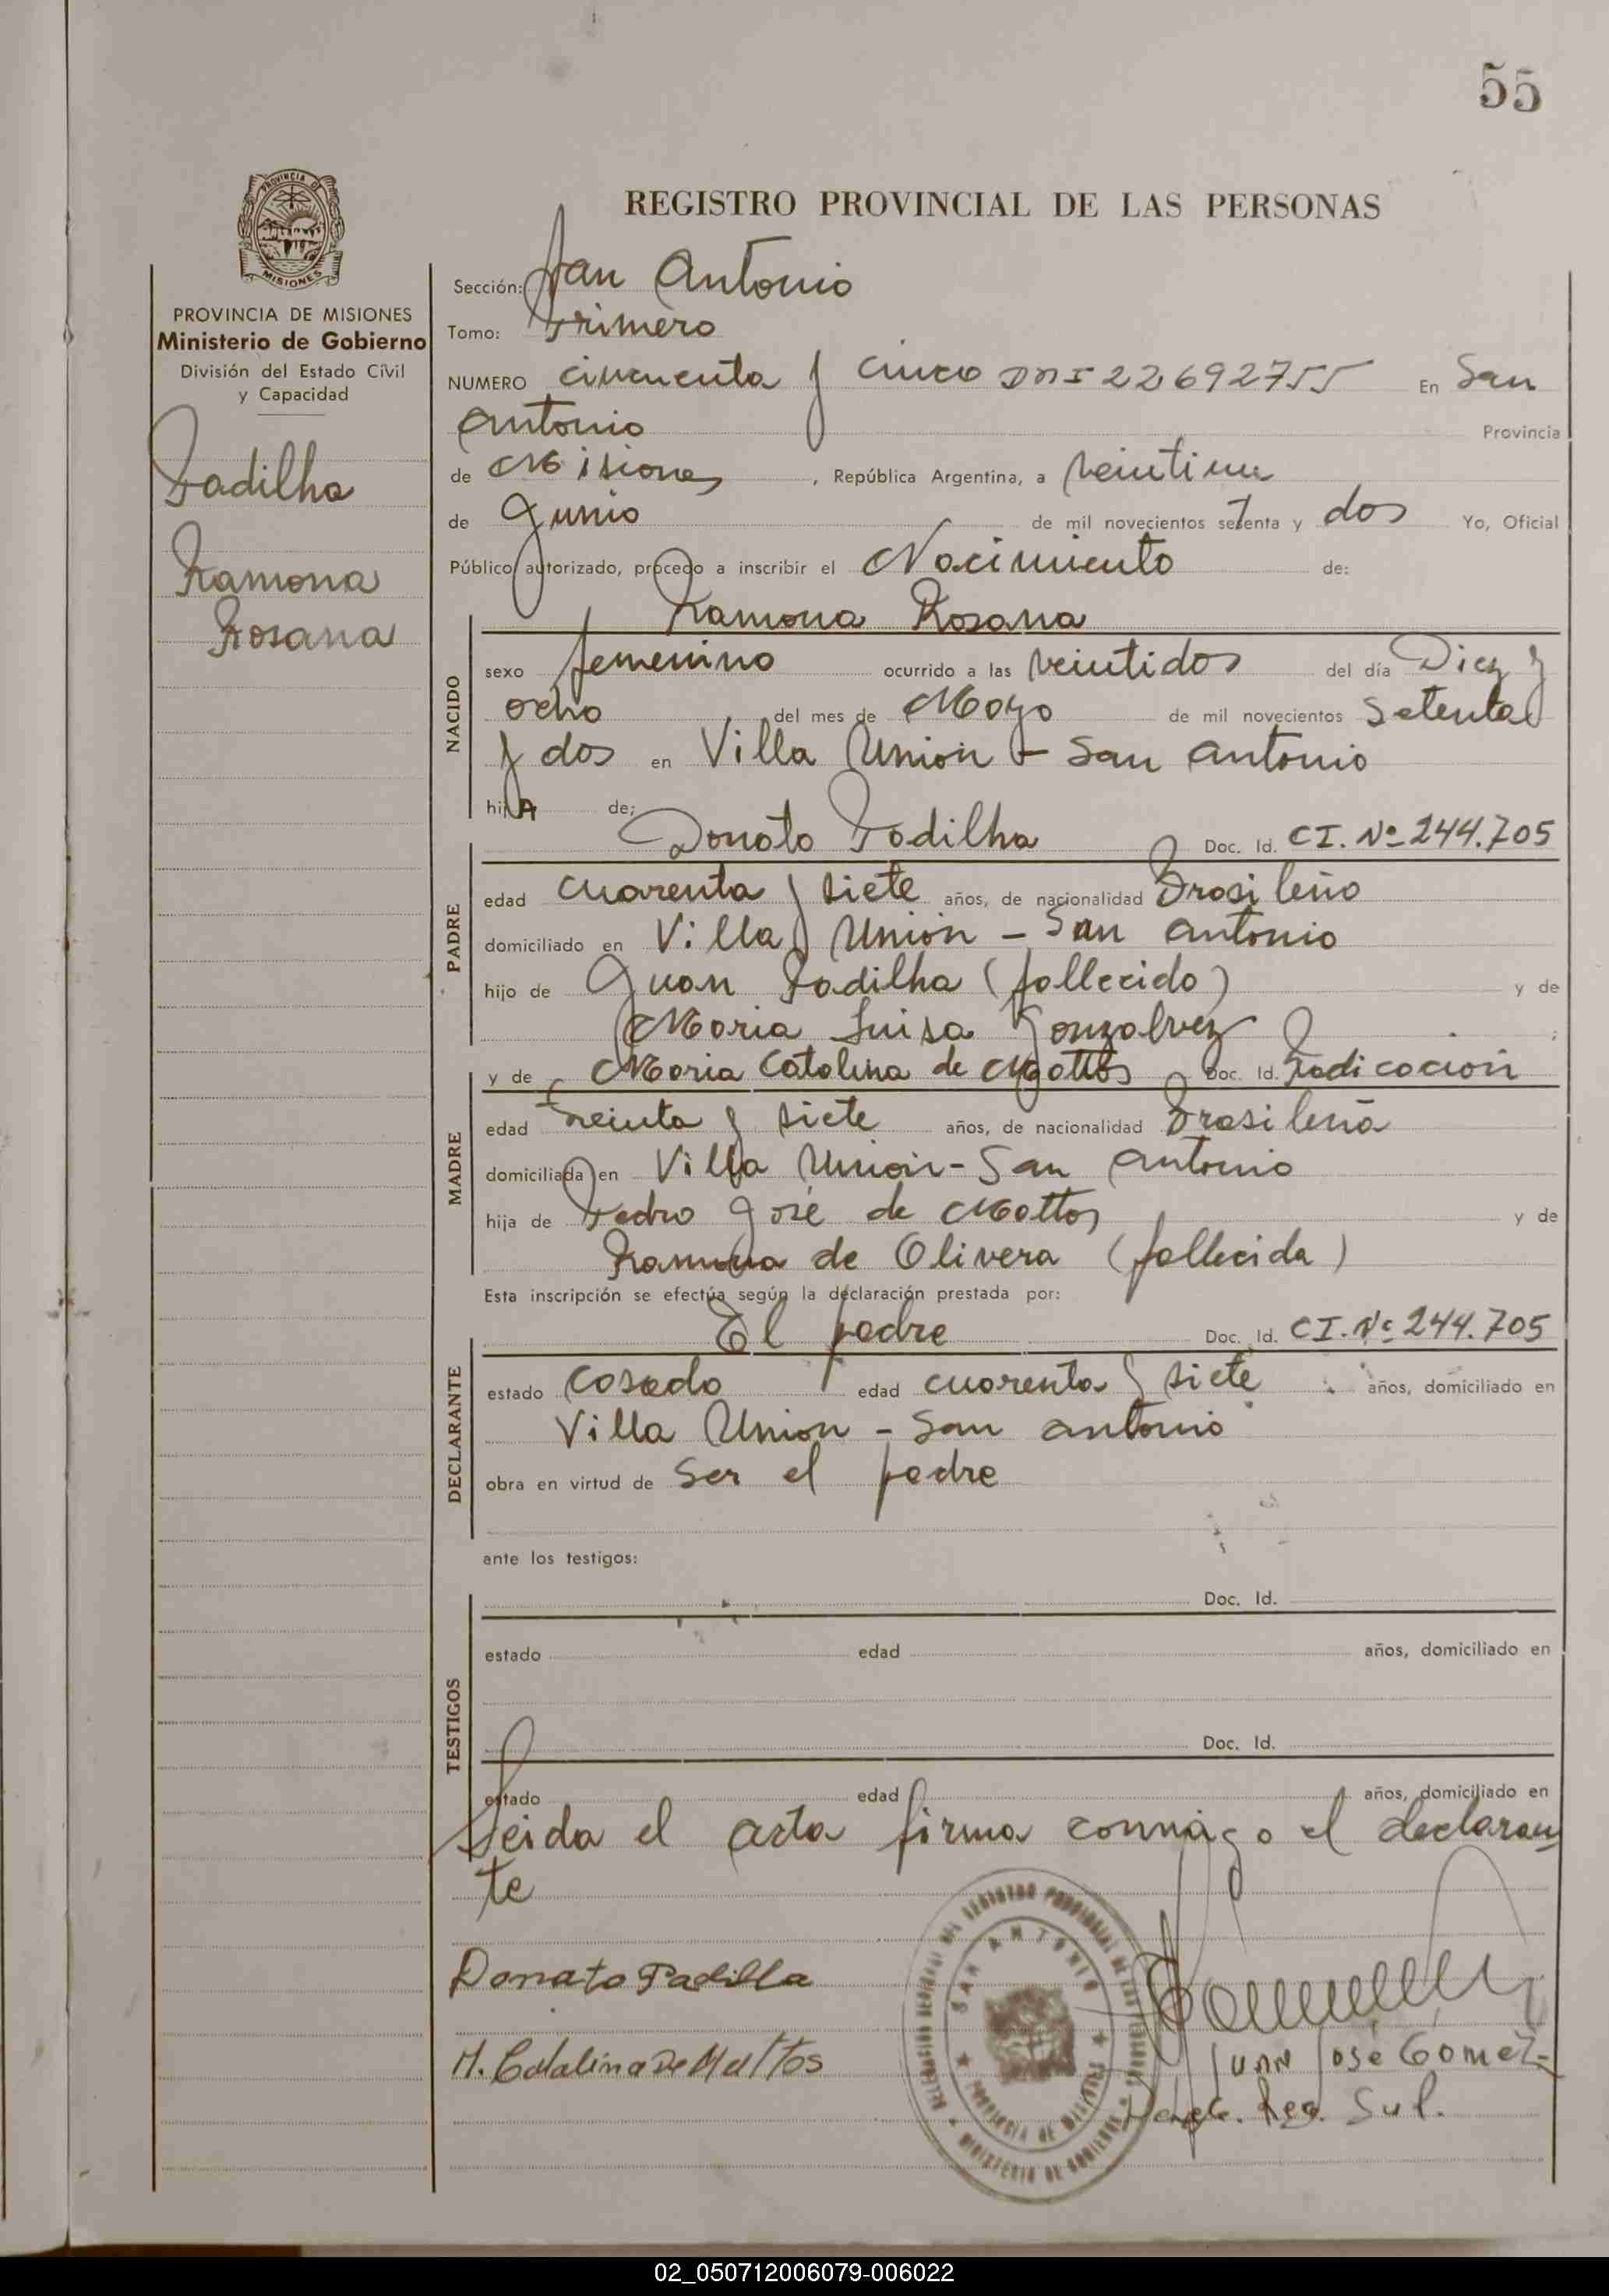 55
PROVINCIA DE
MISIONES
PROVINCIA DE MISIONES
Ministerio de Gobierno
División del Estado Civil
y Capacidad
Padilha
Ramona
Rosana
REGISTRO PROVINCIAL DE LAS PERSONAS
Sección: San Antonio
Tomo: Primero
NUMERO cincuenta y cinco DNI 22692755 En San
Antonio Provincia
de Misiones, República Argentina, a veintiun
de Junio de mil novecientos setenta y dos Yo, Oficial
Público autorizado, procedo a inscribir el Nacimiento de:
Ramona Rosana
NACIDO
sexo femenino ocurrido a las veintidos del día Diez y
ocho del mes de Mayo de mil novecientos Setenta
y dos en Villa Unión - San Antonio
hijA de:
Donato Padilha Doc. Id. CI. Nº 244.705
PADRE
edad cuarenta y siete años, de nacionalidad Brasileño
domiciliado en Villa Unión - San Antonio
hijo de Juan Padilha (fallecido) y de
Maria Luisa Gonzalvez ;
y de Maria Catalina de Mattos Doc. Id. Radicación
MADRE
edad treinta y siete años, de nacionalidad Brasileña
domiciliada en Villa Unión - San Antonio
hija de Pedro José de Mattos y de
Ramona de Olivera (fallecida)
Esta inscripción se efectúa según la declaración prestada por:
El padre Doc. Id. CI. Nº 244.705
DECLARANTE
estado Casado edad cuarenta y siete años, domiciliado en
Villa Union - San Antonio
obra en virtud de Ser el padre
ante los testigos:
Doc. Id.
TESTIGOS
estado edad años, domiciliado en
Doc. Id.
estado edad años, domiciliado en
Leida el acta firma conmigo el declaran
te
Donato Padilla
M. Catalina De Mattos
SAN ANTONIO
PROVINCIA DE MISIONES
MINISTERIO DE GOBIERNO
JUAN José Gomez
Reg. Sup.
02_050712006079-006022